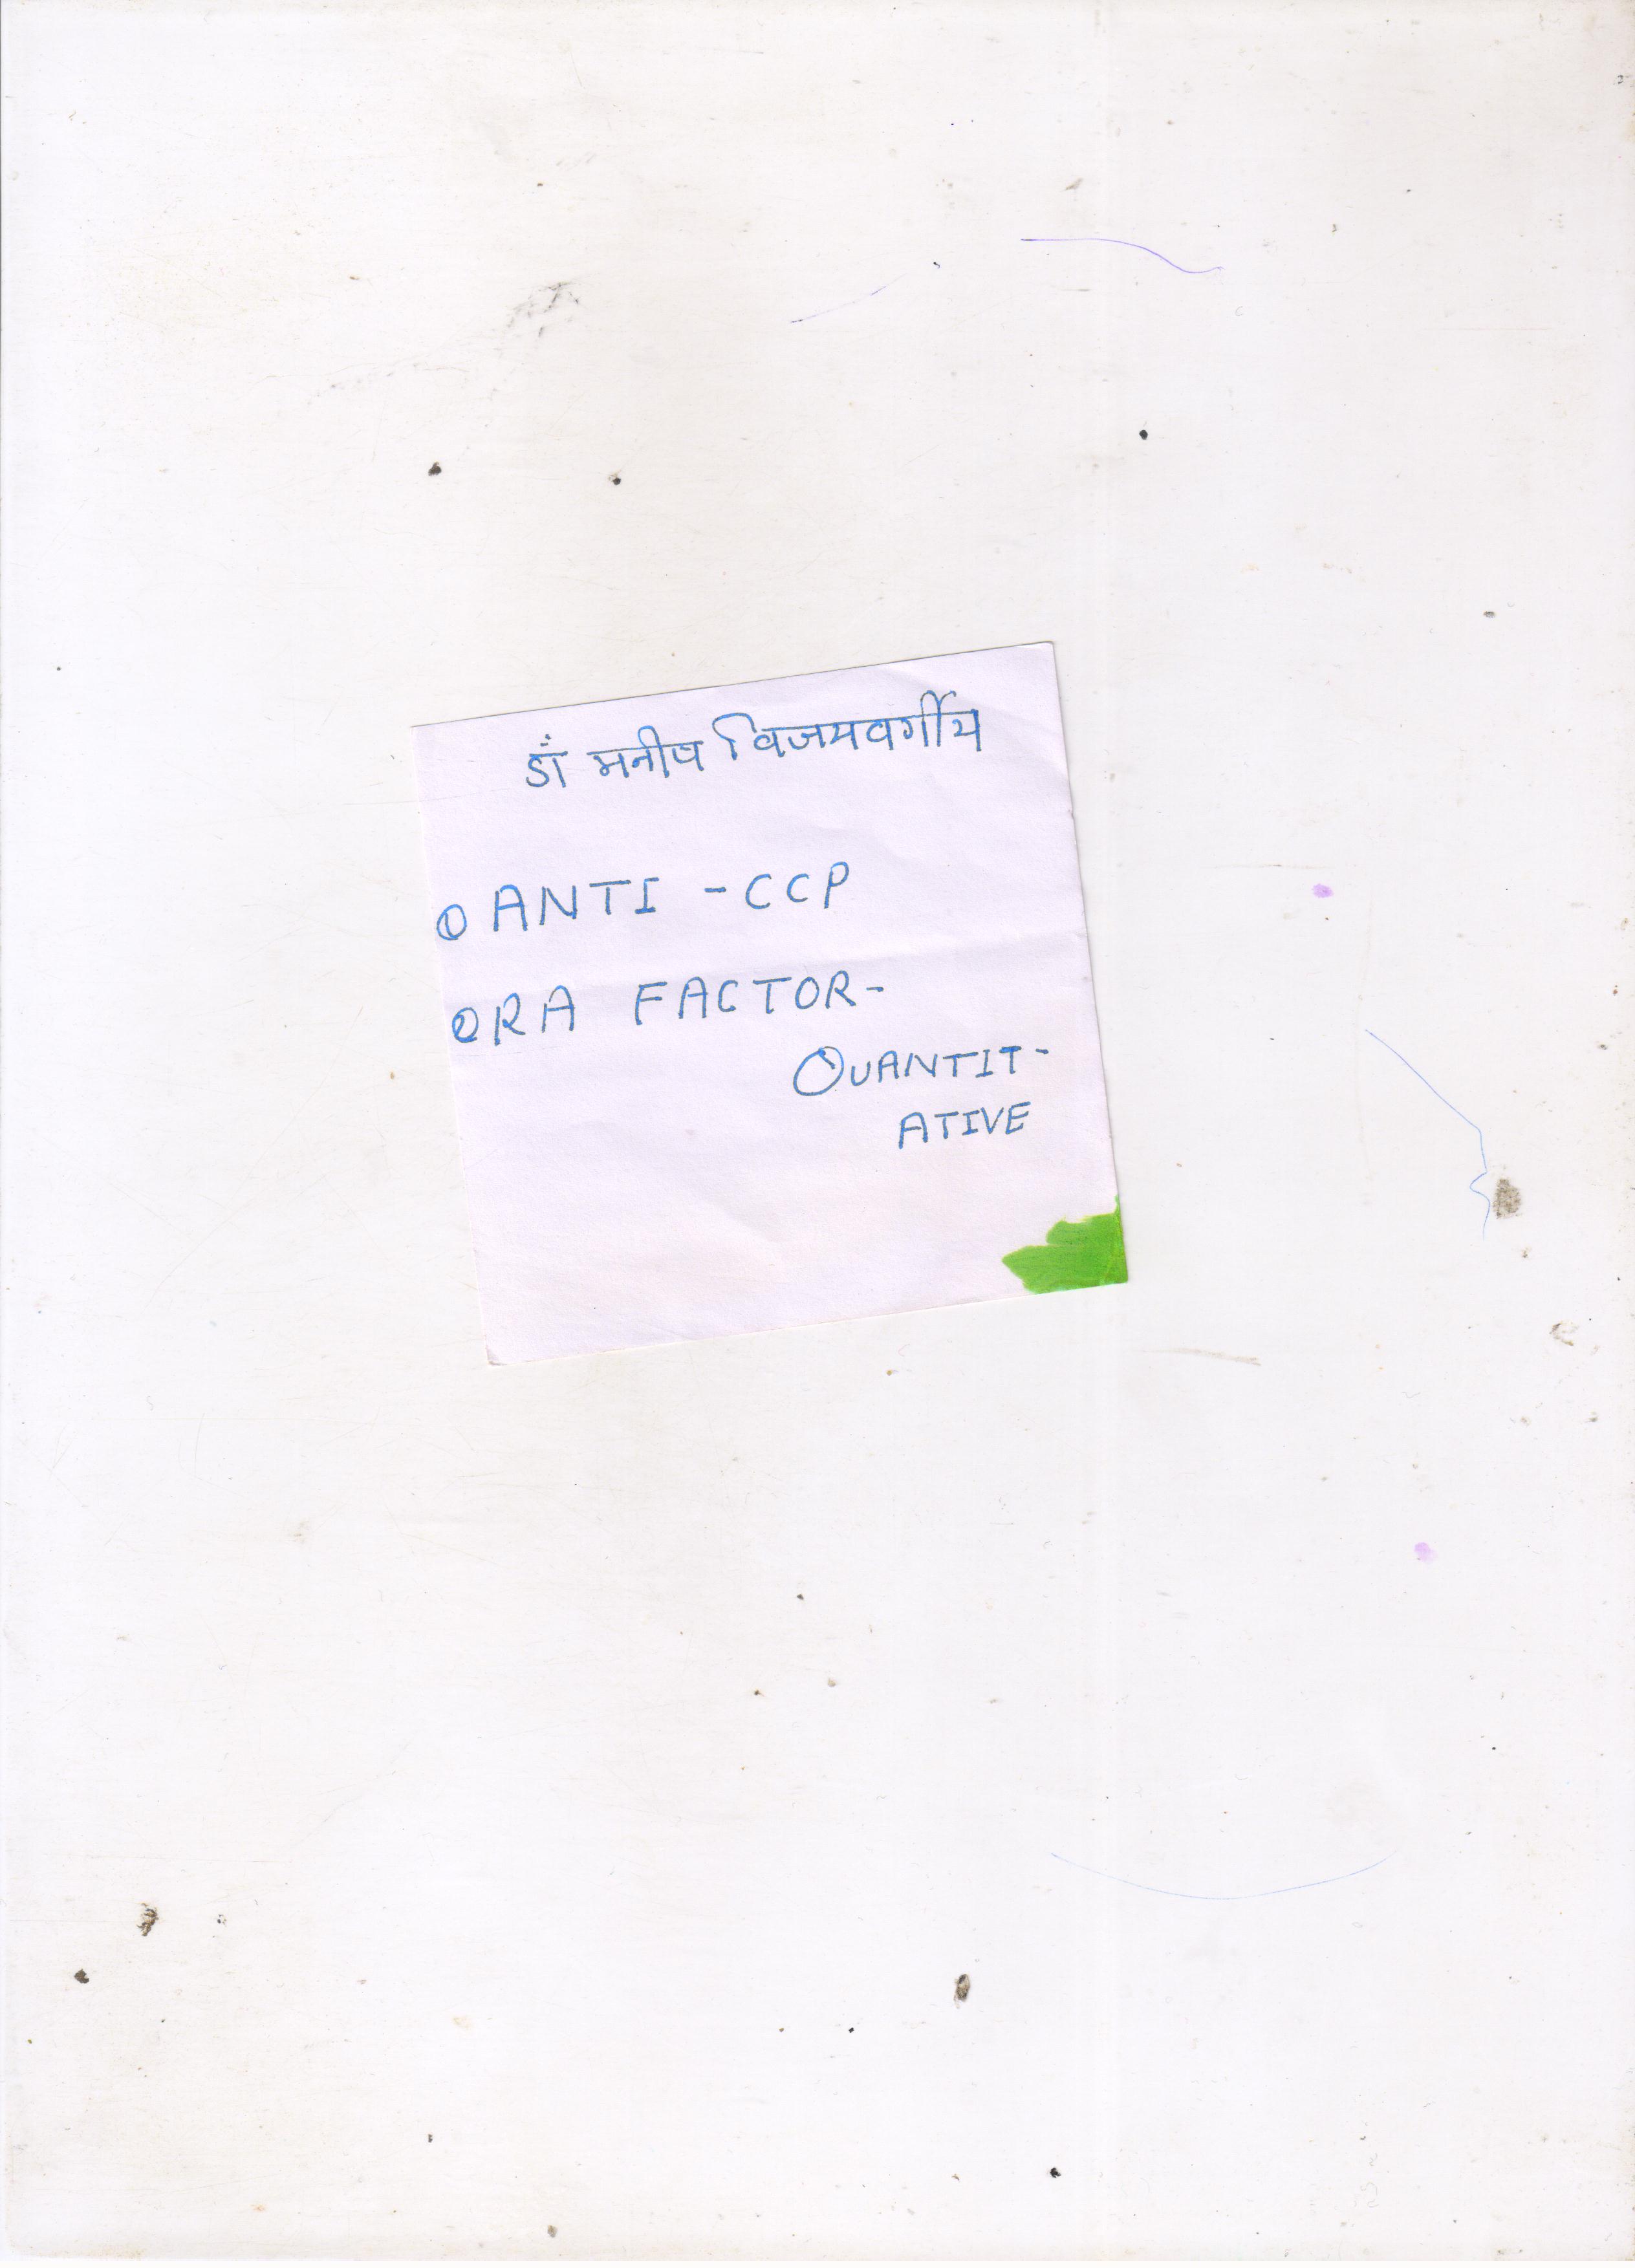 डॉ मनीष विजयवर्गीय
① ANTI - CCP
② RA FACTOR-
QUANTIT-
ATIVE